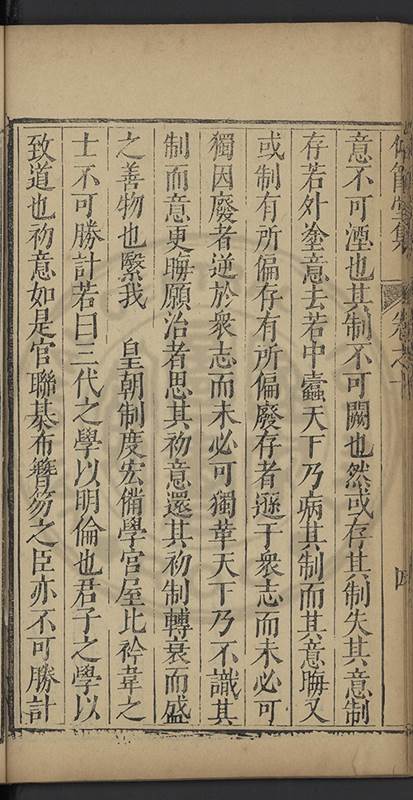 意不可湮也其制不可闕也然或存其制失其意制
存若外塗意去若中蠹天下乃病其制而其意晦又
或制有所偏存有所偏廢存者遜于衆志而未必可
獨因廢者逆於衆志而未必可獨革天下乃不識其
制而意更晦願治者思其初意還其初制轉衰而盛
之善物也繄我　皇朝制度宏備學官屋比衿韋之
士不可勝計若曰三代之學以明倫也君子之學以
致道也初意如是官聯棊布簪笏之臣亦不可勝計